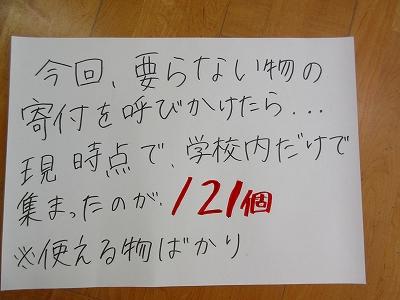 今回、要らない物の
寄付を呼びかけたら...
現時点で、学校内だけで
集まったのが、121個
※使える物ばかり